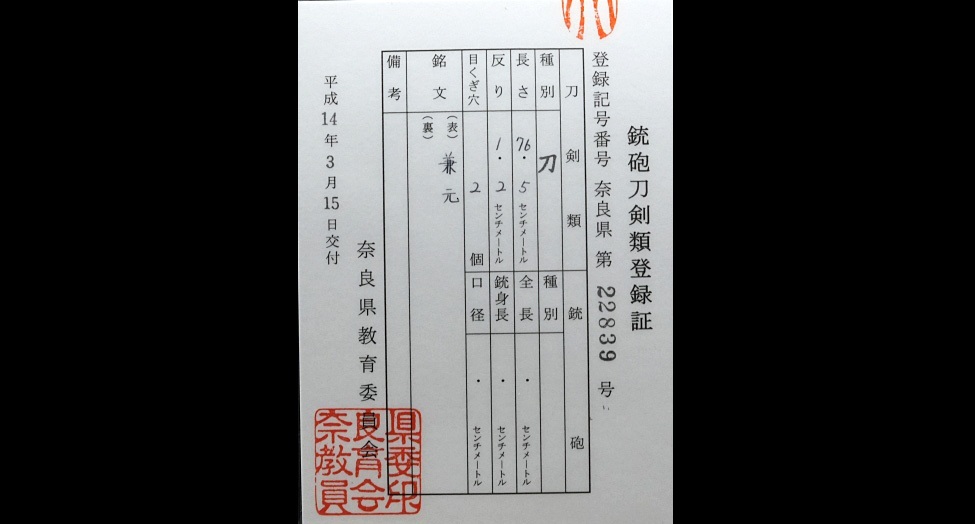 銃砲刀剣類登録証
登録記号番号 奈良県 第 22839 号
刀剣類
銃砲
種別 刀
種別
長さ 76・5センチメートル
全長 ・ センチメートル
反り 1・2センチメートル
銃身長 ・ センチメートル
目くぎ穴 2 個
口径 ・ センチメートル
銘文 (表) 兼元
(裏)
備考
奈良県教育委員会
平成14年3月15日交付
県委印
良育会
奈教員